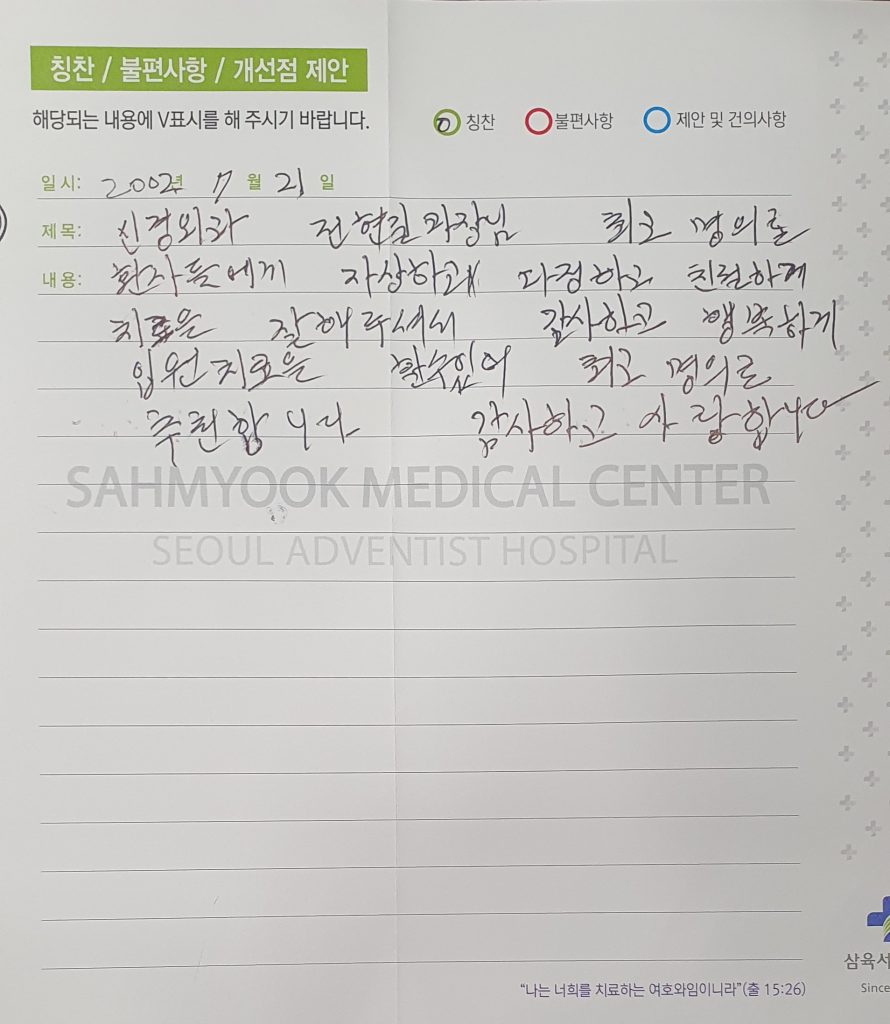 칭찬 / 불편사항 / 개선점 제안
해당되는 내용에 V표시를 해 주시기 바랍니다. 칭찬 불편사항 제안 및 건의사항
일시: 2002년 7월 21일
제목: 신경외과 전현길과장님 최고 명의로
내용: 환자들에게 자상하고 다정하고 친절하게
치료을 잘해주셔서 감사하고 행복하게
입원치료을 할수있어 최고 명의로
추천합니다 감사하고 사랑합니다
SAHMYOOK MEDICAL CENTER
SEOUL ADVENTIST HOSPITAL
삼육서
Since
"나는 너희를 치료하는 여호와임이니라"(출 15:26)